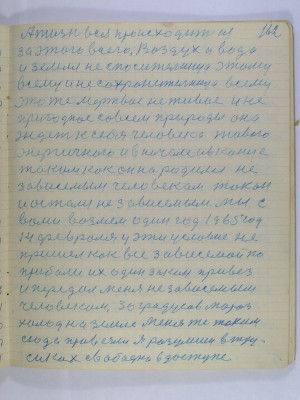 А жизнь вся происходит из 162
за этого всего, Воздух и вода
и земля не способствует этому
всему и не сохраняется всему
это те мертвое не живое и не
пригодное совсем природы она
ждет к себя человека живого
энергичного и в начале и в конце
таким как он на родился не
зависемым человекам таком
и остался не зависемым мы с
вами возмем один год 1965 год
14 февроля у эти условие не
пришел как все зависемой по
прибыли их один закон привез
и передал меня не зависемым
человекам, 30 градусов мароз
холод на земле меня те таким
сюда привезли Я разумии в тру-
сиках свабодно в доступе